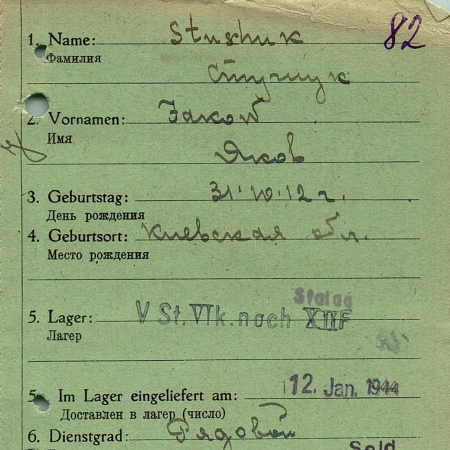 1. Name: Stuschuk 82
Фамилия
Стучук
2. Vornamen: Jakow
Имя
Яков
3. Geburtstag: 31.10.12 г.
День рождения
4. Geburtsort: Киевская обл.
Место рождения
Stalag
5. Lager: V St. VI k. nach XII F
Лагер
5 Im Lager eingeliefert am: 12. Jan. 1944
Доставлен в лагер (число)
6. Dienstgrad: Рядовой
Sold